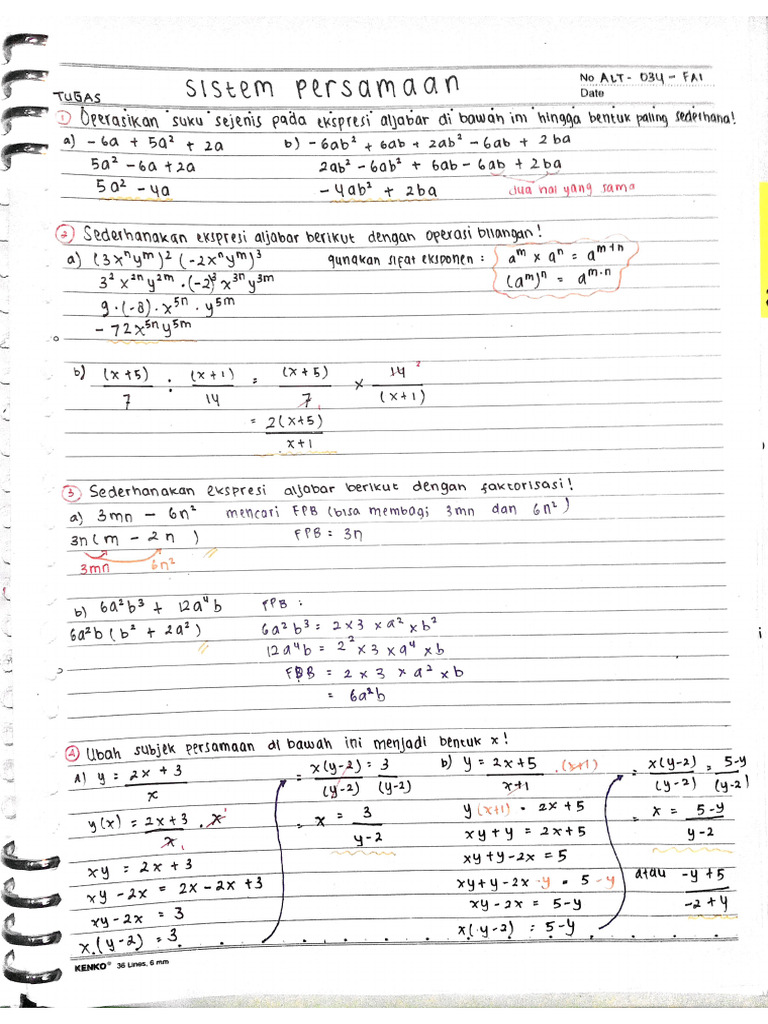 No ALT - 034 - FA1
Date
Sistem Persamaan
TUGAS
① Operasikan suku sejenis pada ekspresi aljabar di bawah ini hingga bentuk paling sederhana!
a) -6a + 5a² + 2a
5a² - 6a + 2a
5a² - 4a
b) -6ab² + 6ab + 2ab² - 6ab + 2ba
2ab² - 6ab² + 6ab - 6ab + 2ba
-4ab² + 2ba
dua hal yang sama
② Sederhanakan ekspresi aljabar berikut dengan operasi bilangan!
a) (3xⁿyᵐ)² (-2xⁿyᵐ)³
3² x²ⁿy²ᵐ · (-2)³ x³ⁿy³ᵐ
9 · (-8) · x⁵ⁿ · y⁵ᵐ
- 72x⁵ⁿy⁵ᵐ
gunakan sifat eksponen :
aᵐ × aⁿ = aᵐ⁺ⁿ
(aᵐ)ⁿ = aᵐ·ⁿ
b) (x+5)/7 : (x+1)/14 = (x+5)/7 × 14/(x+1)
= 2(x+5)/x+1
③ Sederhanakan ekspresi aljabar berikut dengan faktorisasi!
a) 3mn - 6n² mencari FPB (bisa membagi 3mn dan 6n²)
3n(m - 2n) FPB : 3n
3mn 6n²
b) 6a²b³ + 12a⁴b
6a²b (b² + 2a²)
FPB :
6a²b³ = 2 × 3 × a² × b²
12a⁴b = 2² × 3 × a⁴ × b
FPB = 2 × 3 × a² × b
= 6a²b
④ Ubah subjek persamaan di bawah ini menjadi bentuk x!
a) y = 2x + 3/x
y(x) = 2x+3/x · x
xy = 2x + 3
xy - 2x = 2x - 2x + 3
xy - 2x = 3
x(y-2) = 3
= x(y-2)/(y-2) = 3/(y-2)
= x = 3/y-2
b) y = 2x+5/x+1 · (x+1)
y(x+1) = 2x + 5
xy + y = 2x + 5
xy + y - 2x = 5
xy + y - 2x - y = 5 - y
xy - 2x = 5-y
x(y-2) = 5-y
= x(y-2)/(y-2) = 5-y/(y-2)
= x = 5-y/y-2
atau -y+5/-2+y
KENKO® 36 Lines, 6 mm